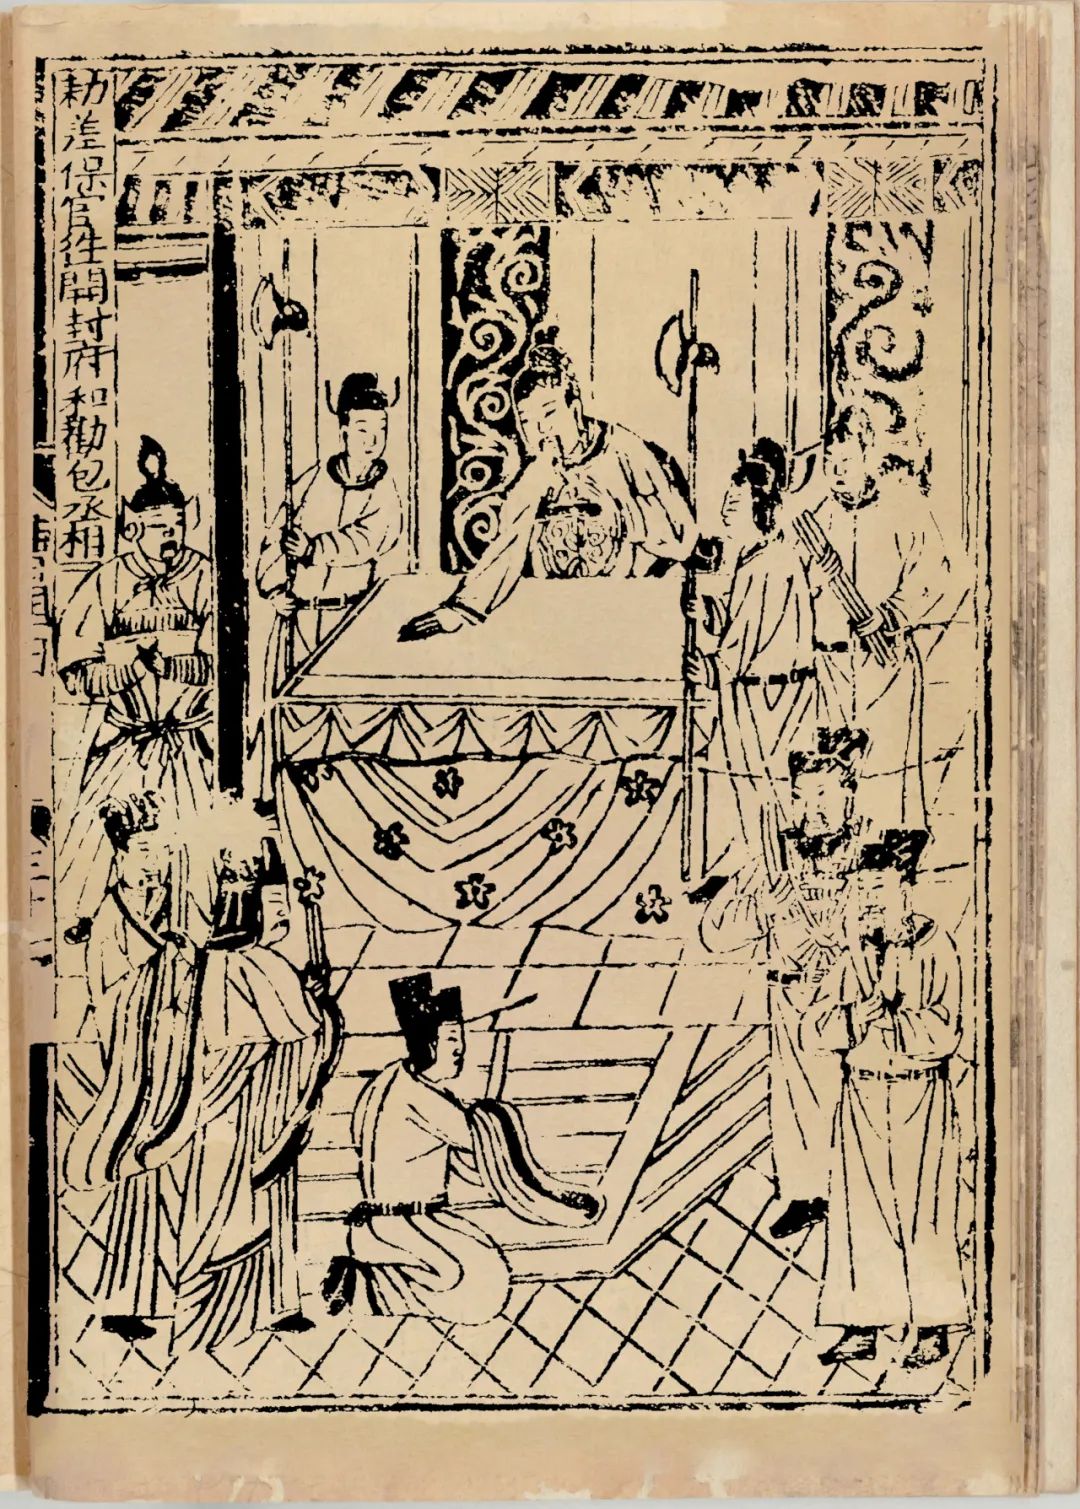 勑差保官徃開封府和勸包丞相